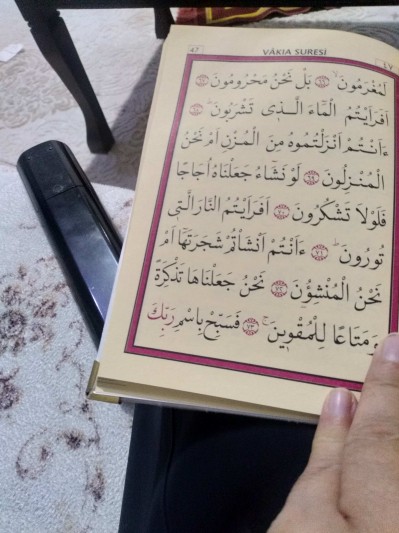 47 VÂKIA SURESİ ٤٧
لَمُغْرَمُونَۙ ﴿٦٦﴾ بَلْ نَحْنُ مَحْرُومُونَ ﴿٦٧﴾
اَفَرَاَيْتُمُ الْمَٓاءَ الَّذ۪ي تَشْرَبُونَۜ ﴿٦٨﴾
ءَاَنْتُمْ اَنْزَلْتُمُوهُ مِنَ الْمُزْنِ اَمْ نَحْنُ
الْمُنْزِلُونَ ﴿٦٩﴾ لَوْ نَشَٓاءُ جَعَلْنَاهُ اُجَاجًا
فَلَوْلَا تَشْكُرُونَ ﴿٧٠﴾ اَفَرَاَيْتُمُ النَّارَ الَّت۪ي
تُورُونَۜ ﴿٧١﴾ ءَاَنْتُمْ اَنْشَأْتُمْ شَجَرَتَهَٓا اَمْ
نَحْنُ الْمُنْشِؤُ۫نَ ﴿٧٢﴾ نَحْنُ جَعَلْنَاهَا تَذْكِرَةً
وَمَتَاعًا لِلْمُقْو۪ينَۚ ﴿٧٣﴾ فَسَبِّحْ بِاسْمِ رَبِّكَ